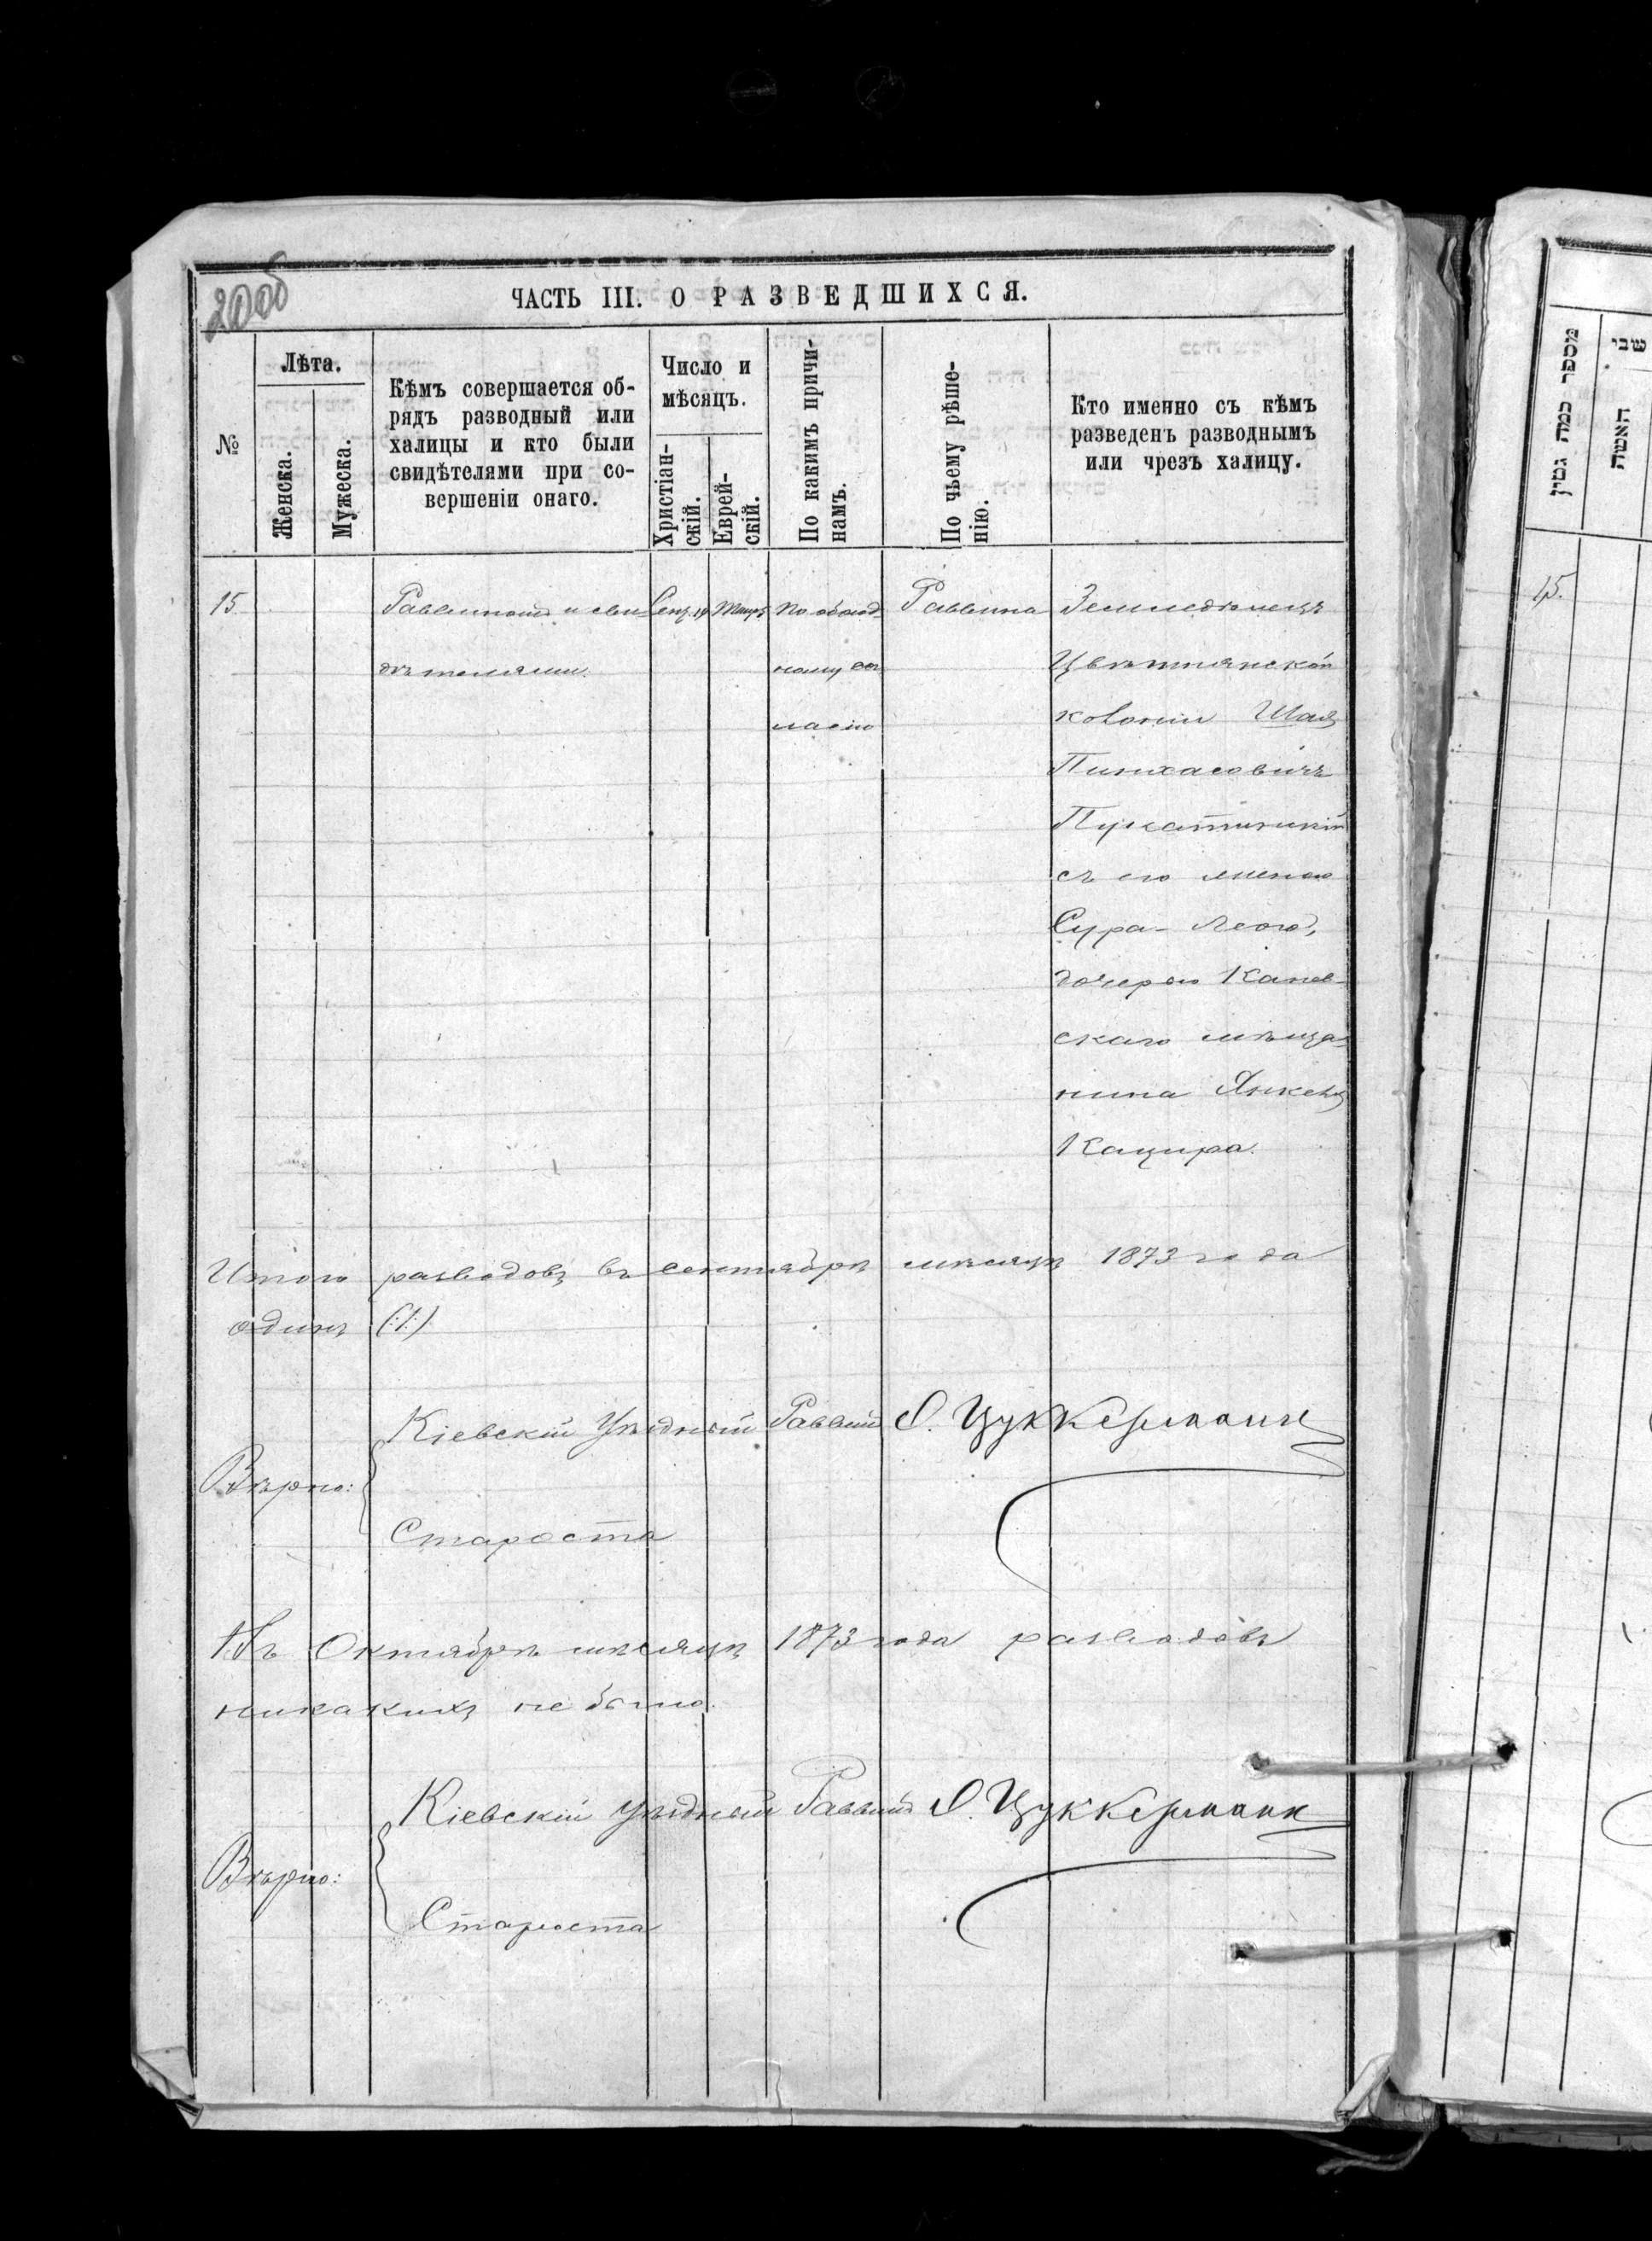 200об
ЧАСТЬ III. О РАЗВЕДШИХСЯ.
№
Лѣта.
Женска.
Мужеска.
Кѣмъ совершается об-
рядъ разводный или
халицы и кто были
свидѣтелями при со-
вершеніи онаго.
Число и
мѣсяцъ.
Христіан-
скій.
Еврей-
скій.
По какимъ причи-
намъ.
По чьему рѣше-
нію.
Кто именно съ кѣмъ
разведенъ разводнымъ
или чрезъ халицу.
15.
Раввиномъ и сви-
дѣтелями.
Сент. 19
Тишр.
По обоюд-
ному со-
гласію
Раввина
Земледѣлецъ
Цвѣтнянской
колоніи Шая
Пинхасовичъ
съ его женою
Сура-Леою,
дочерью Канев-
скаго мѣща-
нина Янкеля
Кацира.
Итого разводовъ въ сентябрѣ мѣсяцѣ 1873 года
одинъ (:1:)
Вѣрно:
Кіевскій Уѣздный Раввинъ О. Цуккерманъ
Староста
Въ Октябрѣ мѣсяцѣ 1873 года разводовъ
никакихъ не было.
Вѣрно:
Кіевскій уѣздный Раввинъ О. Цуккерманъ
Староста
מספר כמה גטין
שבי
האשה
15.